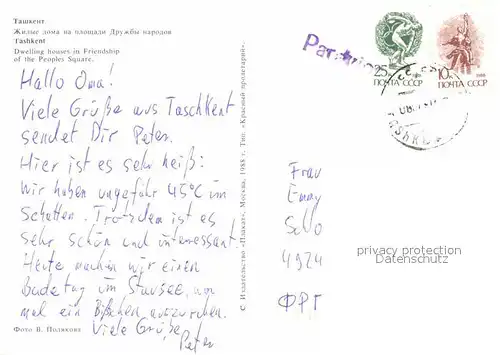 Ташкент
Жилые дома на площади Дружбы народов
Tashkent
Dwelling houses in Friendship
of the Peoples Square.
Hallo Oma!
Viele Grüße aus Taschkent
sendet Dir Peter.
Hier ist es sehr heiß:
Wir haben ungefähr 45°C im
Schatten. Trotzdem ist es
sehr schön und interessant.
Heute machen wir einen
Badetag im Stausee, um
mal ein Bißchen auszuruhen.
Viele Grüße,
Peter
Фото В. Полякова
© Издательство «Плакат», Москва, 1988 г. Тип. «Красный пролетарий».
25к 1988
ПОЧТА СССР
10к 1988
ПОЧТА СССР
Frau
Emmy
4924
ФРГ
privacy protection
Datenschutz